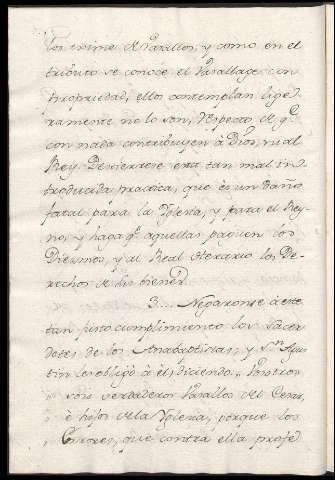 los exime de Vasallos, y como en el
tributo se conoce el Vasallage con
propriedad, ellos contemplan lige-
ramente no lo son, respecto de qe.
con nada contribuyen à Dios, ni al
Rey. Destierrese esta tan mal in-
troducida practica, que es un daño
fatal para la Yglesia, y para el Rey-
no, y haga qe. aquellas paguen los
Diezmos, y al Real Herario los De-
rechos de sus bienes.
3... Negaronse à este
tan justo cumplimiento los Sacer-
dotes de los Anabaptistas, y Sn. Agus-
tin les obligò à èl, diciendo: Vosotros
sois verdaderos Vasallos del Cesar,
è hijos de la Yglesia, porque los
Errores, que contra ella profe